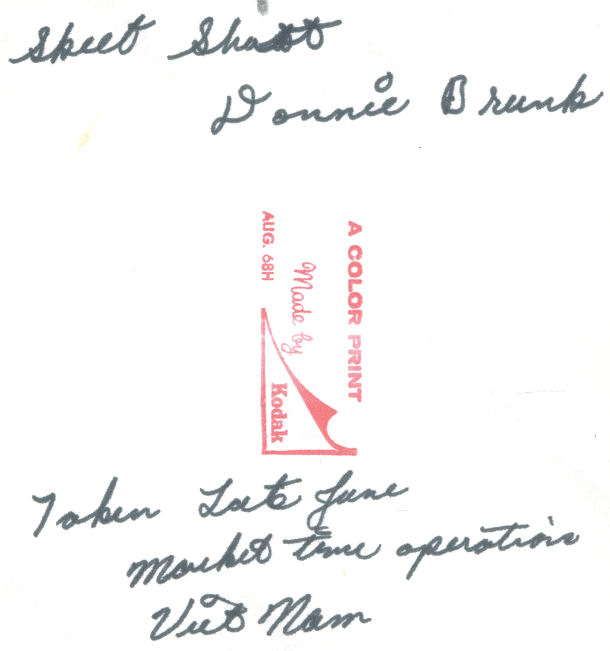 Skeet Shoot
Donnie Brunk
A COLOR PRINT
Made by
Kodak
AUG. 68H
Taken Late June
Market time operations
Viet Nam